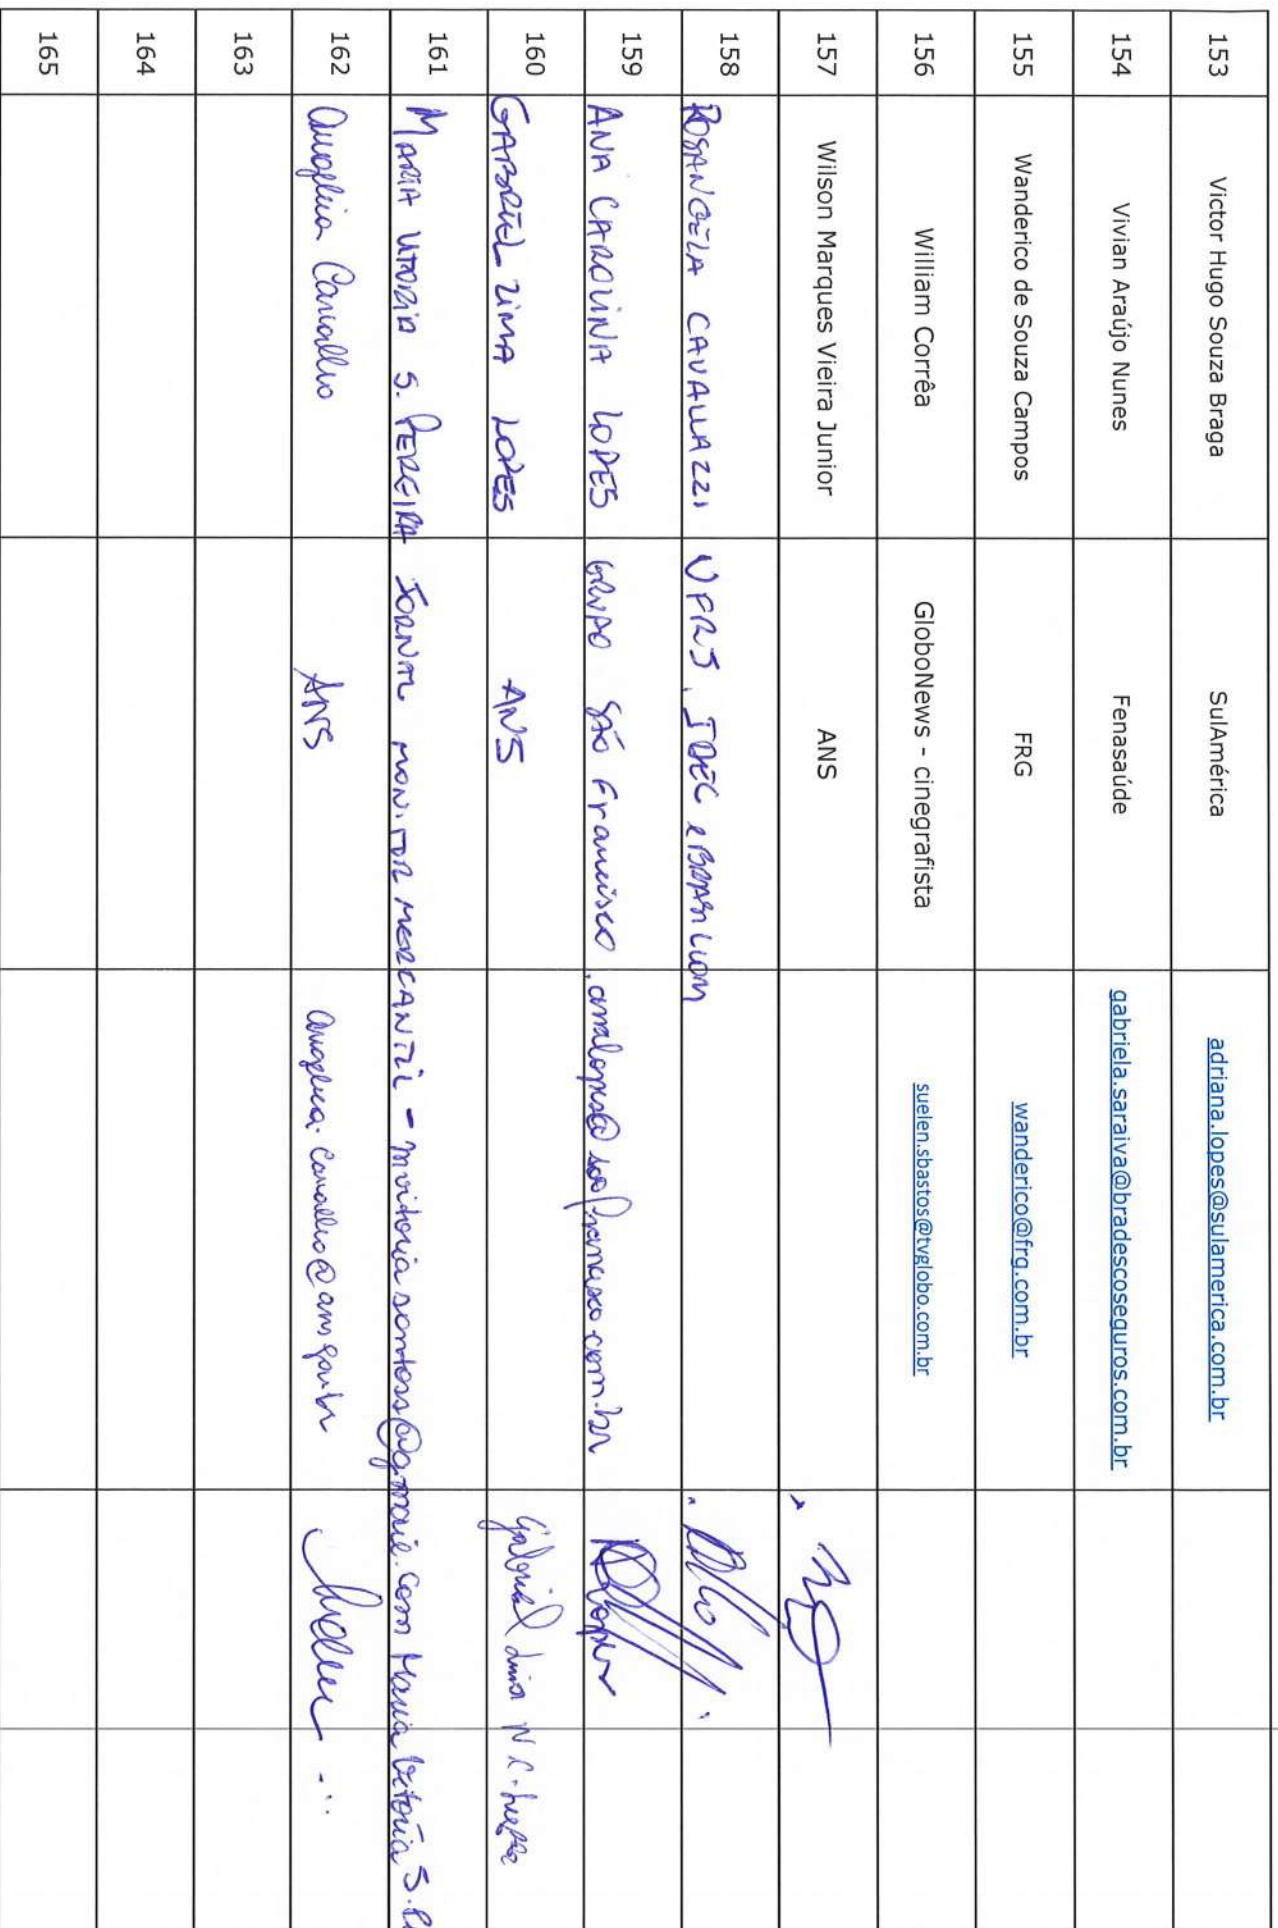 153 Victor Hugo Souza Braga SulAmérica adriana.lopes@sulamerica.com.br
154 Vivian Araújo Nunes Fenasaúde gabriela.saraiva@bradescoseguros.com.br
155 Wanderico de Souza Campos FRG wanderico@frg.com.br
156 William Corrêa GloboNews - cinegrafista suelen.sbastos@tvglobo.com.br
157 Wilson Marques Vieira Junior ANS
158 ROSANGELA CAVALLAZZI UFRJ, IDEC e BRASILCON
159 ANA CAROLINA LOPES GRUPO SÃO Francisco analopes@saofrancisco.com.br
160 GABRIEL LIMA LOPES ANS Gabriel Lima
161 MARIA VITÓRIA S. PEREIRA JORNAL MONITOR MERCANTIL - mvitoriasantoss@gmail.com Maria Vitória S.
162 Angélica Carvalho ANS angelica.carvalho@ans.gov.br
163
164
165